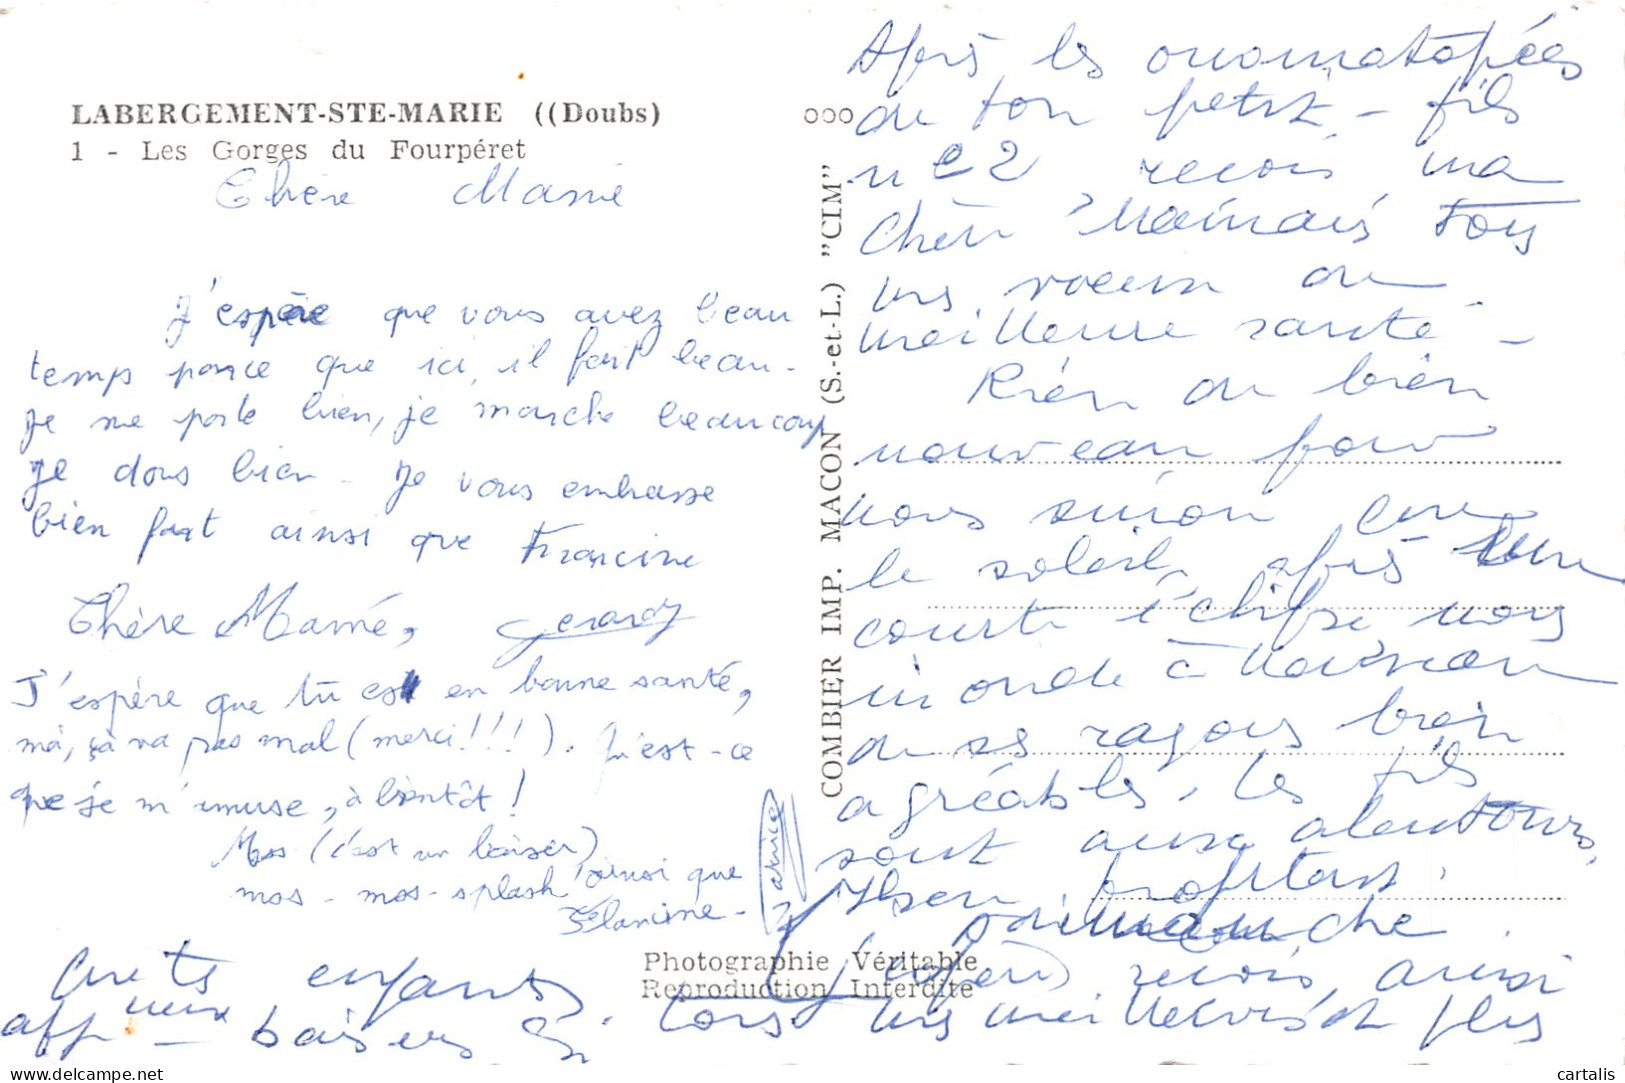 LABERGEMENT-STE-MARIE ((Doubs)
1 - Les Gorges du Fourpéret
Chère Mamé
J'espère que vous avez beau
temps parce que ici, il fait beau.
Je me porte bien, je marche beaucoup
Je dors bien - Je vous embrasse
bien fort ainsi que Francine
Gérard
Chère Mamé,
J'espère que tu es en bonne santé,
moi, ça va pas mal (merci!!!). Qu'est-ce
que je m'amuse, à bientôt!
Mos (c'est un baiser)
mos - mos - splash ainsi que
Flancine -
Patrice
COMBIER IMP. MACON (S.-et-L.) "CIM"
Après les onomatopées
de ton petit-fils
n° 2 reçois ma
chère Mamé tous
nos voeux de
meilleure santé -
Rien de bien
nouveau pour
nous sinon que
le soleil, après une
courte éclipse nous
inonde à nouveau
de ses rayons bien
agréables. Les fils
sont aux alentours,
profitant
dimanche.
reçois aussi
nos meilleurs et plus
aff'ueux baisers
enfants
Photographie Véritable
Reproduction Interdite
cartalis